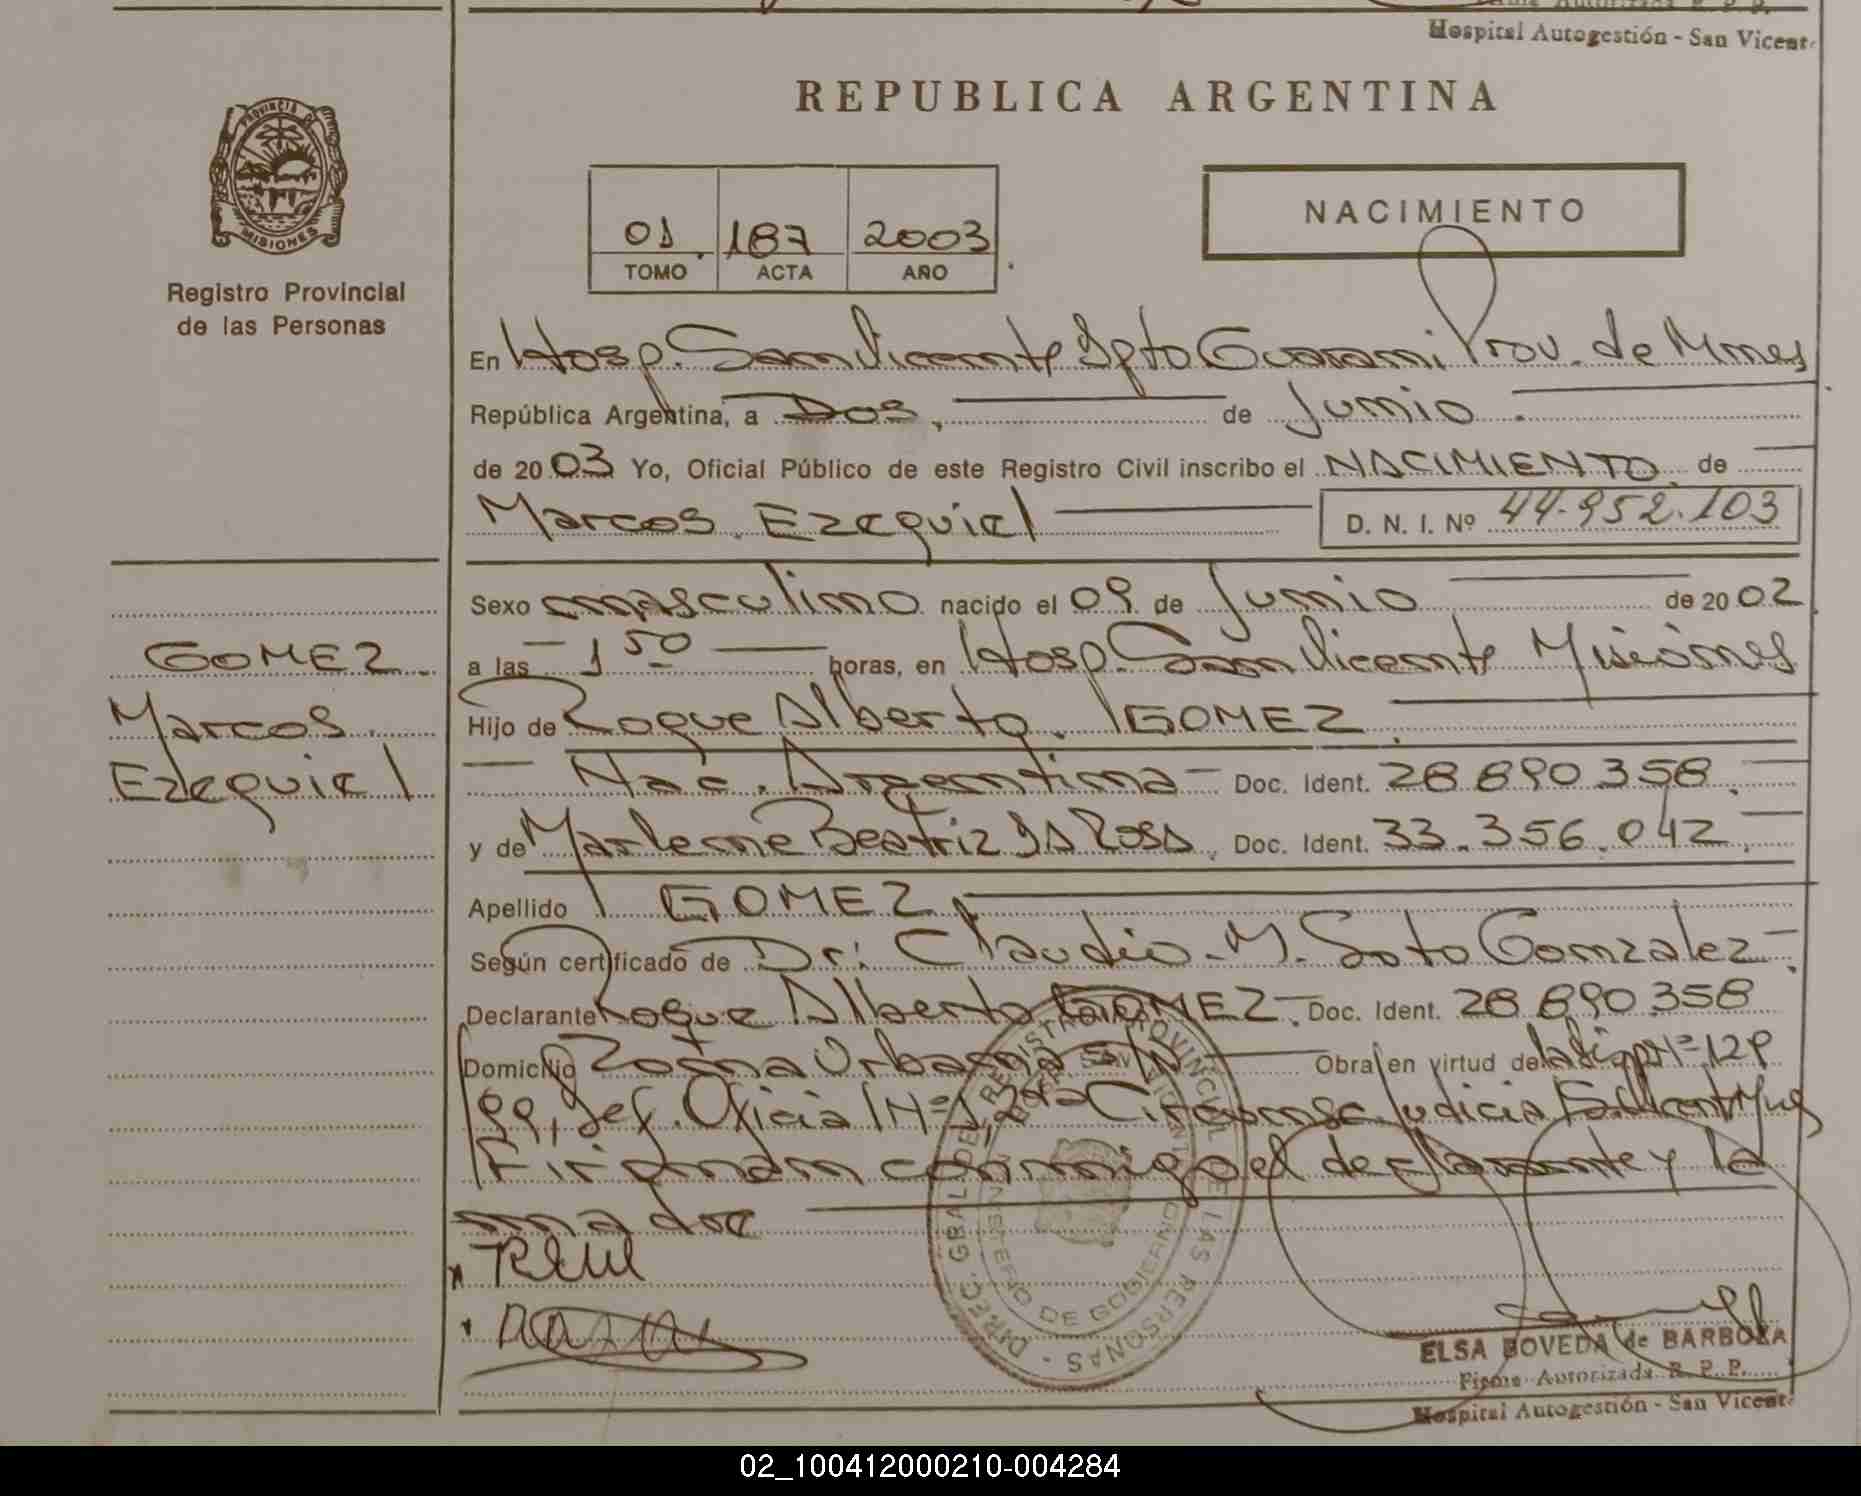 Hospital Autogestión - San Vicent
REPUBLICA ARGENTINA
PROVINCIA DE
MISIONES
Registro Provincial
de las Personas
01 187 2003
TOMO ACTA AÑO
NACIMIENTO
En Hosp. San Vicente Dpto Guarani Prov. de Mnes
República Argentina, a Dos, de Junio.
de 2003 Yo, Oficial Público de este Registro Civil inscribo el NACIMIENTO de
Marcos Ezequiel D. N. I. Nº 44.952.103
Sexo masculino nacido el 09 de Junio de 2002
a las 1 50 horas, en Hosp. San Vicente Misiónes
Hijo de Roque Alberto GOMEZ
Nac. Argentina Doc. Ident. 28.890.358
y de Marlene Beatriz DA ROSA, Doc. Ident. 33.356.042
Apellido GOMEZ
Según certificado de Dr: Claudio M. Soto Gonzalez
Declarante Roque Alberto GOMEZ. Doc. Ident. 28.890.358
Domicilio Zona Urbana S/N Obra en virtud de
99, Def. Oficial Nº 1, 2da Circunsc. Judicia
Firman conmigo el declarante y la
madre
GOMEZ
Marcos
Ezequiel
ELSA BOVEDA de BARBOZA
Firma Autorizada R. P. P.
Hospital Autogestión - San Vicent
02_100412000210-004284